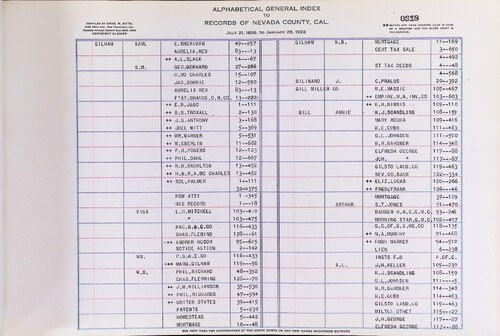 ALPHABETICAL GENERAL INDEX
TO
RECORDS OF NEVADA COUNTY, CAL.
JULY 21, 1856, TO JANUARY 26, 1922
COMPILED BY ORVIS W. WITTE,
0818
GILHAM SAML E.SHERIDAN 49-257
AURELIA.REX 83--13
++ A.L.SLACK 14---67
S.M. GEO.GEPHARD 27-286
H.MC CHARLES 15--107
JAS.DOWNIE 12--590
AURELIA REX 83--13
++ E.D.JAGO 1-111
++ G.D.TROXALL 2-130
++ J.G.ANTHONY 3-168
++ JOEL WITT 5-369
++ WM.WARNER 5--531
++ W.EBERLIN 11-602
++ P.H.POWERS 12--123
++ PHIL.DAHL 12--667
++ H.W.KNORLTON 13-452
++ H.& R.A.MC CHARLES 13-452
++ SOL.PALMER 14--111
32-375
POW ATTY 1-345
HEG RECORD 1--18
VINA L.H.MITCHELL 103-410
" 103-475
PAC.G.& E.CO 116-433
CHAS.FLEMING 128-61
++ ANDREW HUSON 95-605
NOTICE ACTION 2-142
WM. P.G.& E.CO 116-433
++ MARG.GILHAM 119-56
W.B. PHIL.RICHARD 46-352
CHAS.FLEMING 128--78
++ J.M.WILLIAMSON 35-530
++ PHIL.RICHARDS 47-594
++ UNITED STATES 39-415
PATENTS 5-230
HOMESTEAD 5-442
MORTGAGE 10--48
GILHAM W.B. MORTGAGE 11--169
CERT TAX SALE 3--650
4--492
ST TAX DEEDS 4--48
4-568
GILINAND J. C.PRALUS 20--392
GILL MILLER CO M.E.MASSIE 105-467
++ EMPIRE.M.& INV.CO 103-603
++ G.H.NINNIS 109-110
GILL ANNIE W.J.SCANDLING 108-159
MARY ROURK 109-416
M.E.COBB 111-463
G.L.JOHNSON 111-500
W.R.GARDNER 114-368
ELFREDA GEORGE 117--88
J.H. " 117--87
GILSTO LAND CO 119-463
NEV.CO.BANK 122-334
++ ELIZ.LUCAS 120-266
++ FRED.FRANK 126--46
MORTGAGE 37-109
ARTHUR S.T.JONES 91-470
BADGER H.& C.G.M.C. 93-246
MORNING STAR.G.M.CO 102-497
G.C.OF.G.V.NG.CO 118-135
++ M.A.MURPHY 91-468
++ HUGH MARKEY 94-510
LIEN 6-238
INSTS F.D P.OF.C.
A.L. J.H.KELLER 105-230
W.J.SCANDLING 108-159
G.L.JOHNSON 111-5
W.R.GARDNER 114-342
M.E.COBB 114-463
GILSTO LAND CO 119-463
MILTON OTHET 115--27
J.H.GEORGE 117--87
ELFREDA GEORGE 117--88